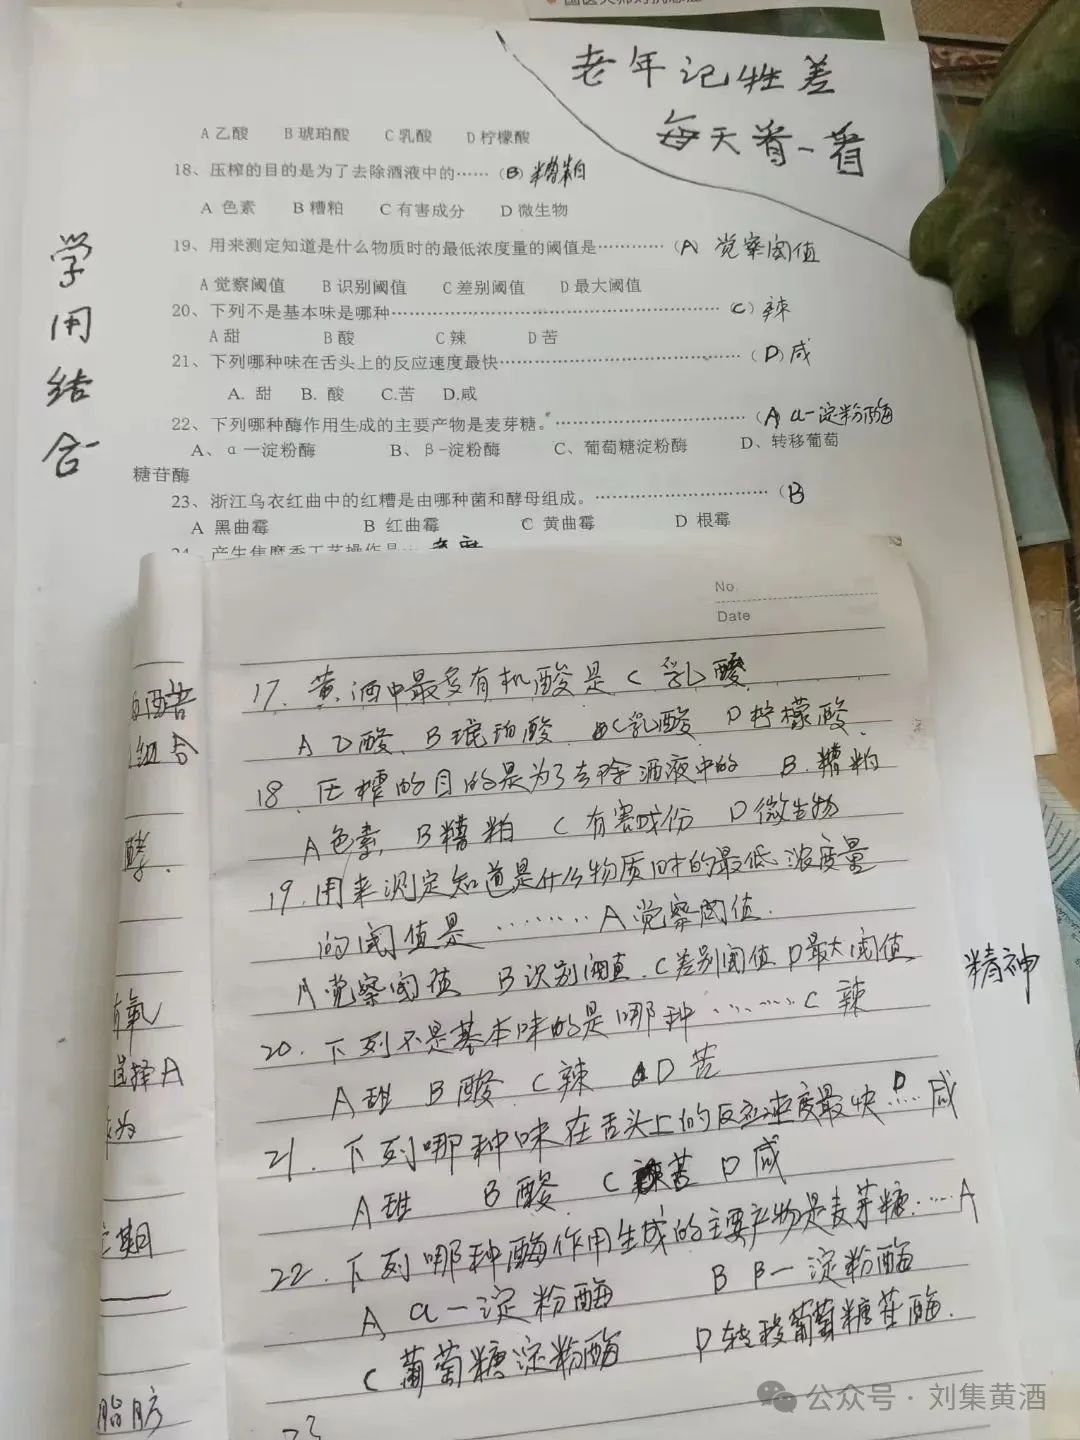 老年记性差
每天看一看
学用结合
A乙酸 B琥珀酸 C乳酸 D柠檬酸
18、压榨的目的是为了去除酒液中的……（B）糟粕
A 色素 B糟粕 C有害成分 D微生物
19、用来测定知道是什么物质时的最低浓度量的阈值是…………（A） 觉察阈值
A觉察阈值 B识别阈值 C差别阈值 D最大阈值
20、下列不是基本味是哪种……………………………………………（C）辣
A甜 B酸 C辣 D苦
21、下列哪种味在舌头上的反应速度最快………………………………（D）咸
A. 甜 B. 酸 C.苦 D.咸
22、下列哪种酶作用生成的主要产物是麦芽糖。…………………………（A）α一淀粉酶
A、α一淀粉酶 B、β-淀粉酶 C、葡萄糖淀粉酶 D、转移葡萄
糖苷酶
23、浙江乌衣红曲中的红糟是由哪种菌和酵母组成。…………………………（B
A 黑曲霉 B 红曲霉 C 黄曲霉 D 根霉
No.
Date
17. 黄酒中最多有机酸是 C 乳酸
A乙酸. B琥珀酸 C乳酸 D柠檬酸.
18. 压榨的目的是为了去除酒液中的 B.糟粕
A色素 B糟粕 C有害成份 D微生物
19. 用来测定知道是什么物质时的最低浓度量
的阈值是………A觉察阈值.
A觉察阈值 B识别阈值.C差别阈值 D最大阈值
20. 下列不是基本味的是哪种………C 辣
A甜 B酸 C辣 D苦
21. 下列哪种味在舌头上的反应速度最快 D…咸
A甜 B酸 C苦 D咸
22. 下列哪种酶作用生成的主要产物是麦芽糖……A
A α一淀粉酶 B β一淀粉酶
C葡萄糖淀粉酶 D转移葡萄糖苷酶.
23
组合
酵.
有氧
选择A
期
脂肪
精神
公众号·刘集黄酒